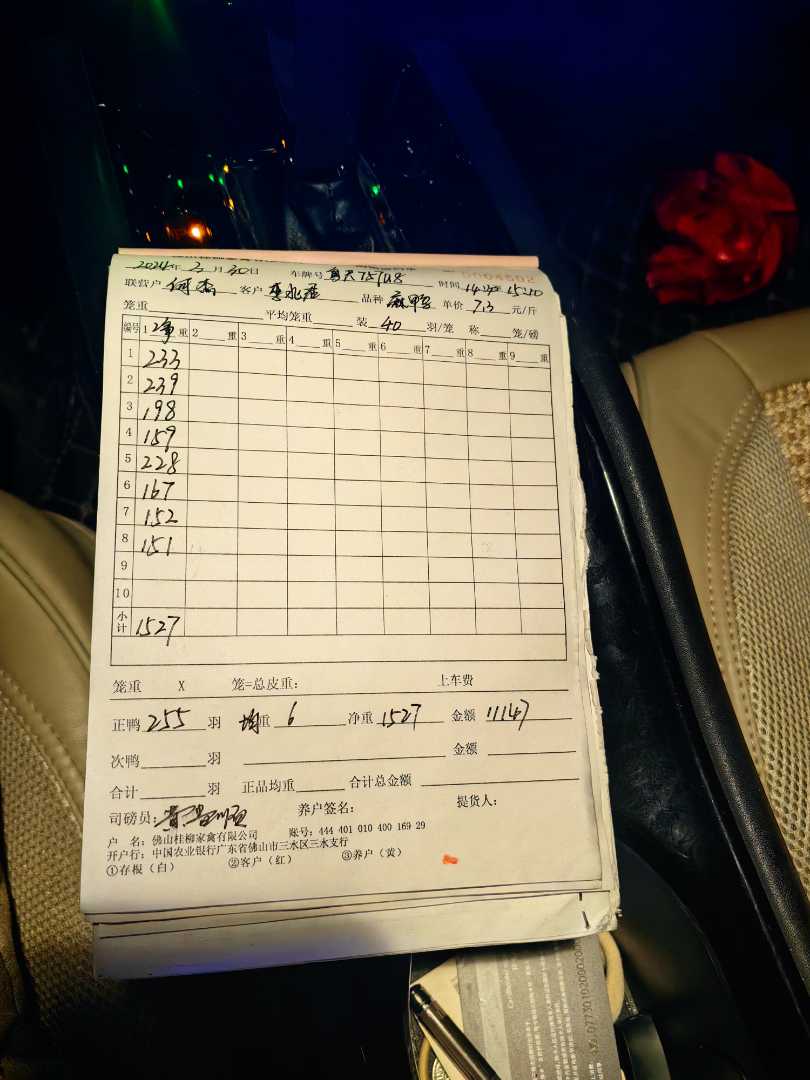 2024年 3月30日 车牌号 时间 14:40 15:10
联营户 何杰 客户 品种 麻鸭 单价 7.3 元/斤
笼重 平均笼重 装 40 羽/笼 称 笼/磅
编号 1 净 重 2 重 3 重 4 重 5 重 6 重 7 重 8 重 9 重
1 233
2 239
3 198
4 159
5 228
6 167
7 152
8 151
9
10
小计 1527
笼重 X 笼=总皮重: 上车费
正鸭 255 羽 均重 6 净重 1527 金额 11147
次鸭 羽 金额
合计 羽 正品均重 合计总金额
司磅员: 养户签名: 提货人:
户 名: 佛山桂柳家禽有限公司 账号: 444 401 010 400 169 29
开户行: 中国农业银行广东省佛山市三水区三水支行
①存根(白) ②客户(红) ③养户(黄)